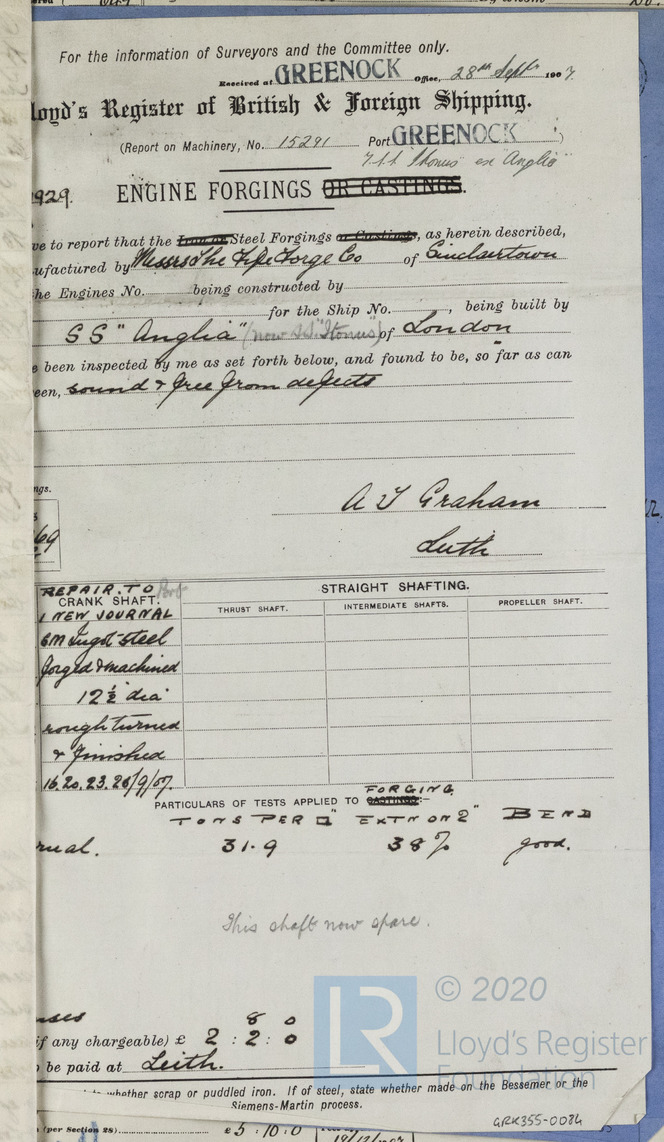 For the information of Surveyors and the Committee only.
Received at GREENOCK Office, 28th Sept 1907.
loyd's Register of British & Foreign Shipping.
(Report on Machinery, No. 15291 Port GREENOCK )
"Itonus" ex "Anglia"
929. ENGINE FORGINGS OR CASTINGS.
ve to report that the Iron or Steel Forgings or Castings, as herein described,
ufactured by Messrs The Fife Forge Co of Sinclairtown
he Engines No. being constructed by
for the Ship No. , being built by
SS "Anglia" (now SS "Itonus") of London
e been inspected by me as set forth below, and found to be, so far as can
een, sound & free from defects
ngs.
69
A T Graham
Leith
REPAIR. TO Port
CRANK SHAFT.
STRAIGHT SHAFTING.
THRUST SHAFT. INTERMEDIATE SHAFTS. PROPELLER SHAFT.
1 NEW JOURNAL
SM Ingot steel
forged & machined
12 1/2" dia
rough turned
& finished
16. 20. 23. 26/9/07.
FORGING
PARTICULARS OF TESTS APPLIED TO CASTINGS:—
TONS PER □" EXTN ON 2" BEND
rnal. 31.9 38% good.
This shaft now spare.
nses 8 0
if any chargeable) £ 2 : 2 : 0
be paid at Leith.
whether scrap or puddled iron. If of steel, state whether made on the Bessemer or the
Siemens-Martin process.
(per Section 28) £5:10:0
LR
© 2020
Lloyd's Register
Foundation
GRK355-0084